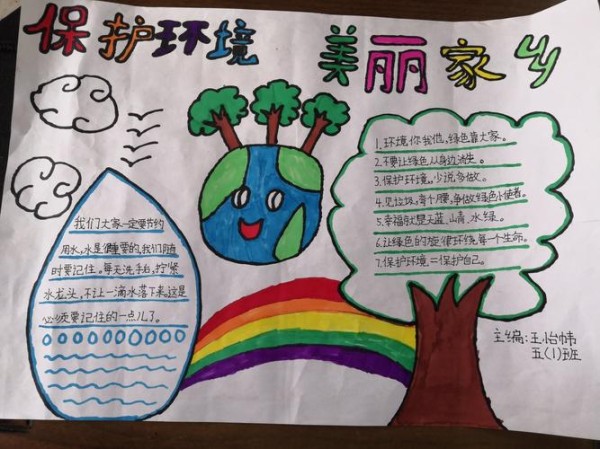 保护环境 美丽家乡
我们大家一定要节约
用水,水是很重要的,我们随
时要记住。每天洗手后,拧紧
水龙头,不让一滴水落下来。这是
必须要记住的一点儿了。
1.环境你我他,绿色靠大家。
2.不要让绿色从身边消失。
3.保护环境。少说多做。
4.见垃圾,弯个腰,争做绿色小使者。
5.幸福就是天蓝、山青、水绿。
6.让绿色的旋律环绕,每一个生命。
7.保护环境=保护自己。
主编:王怡帏
五(1)班